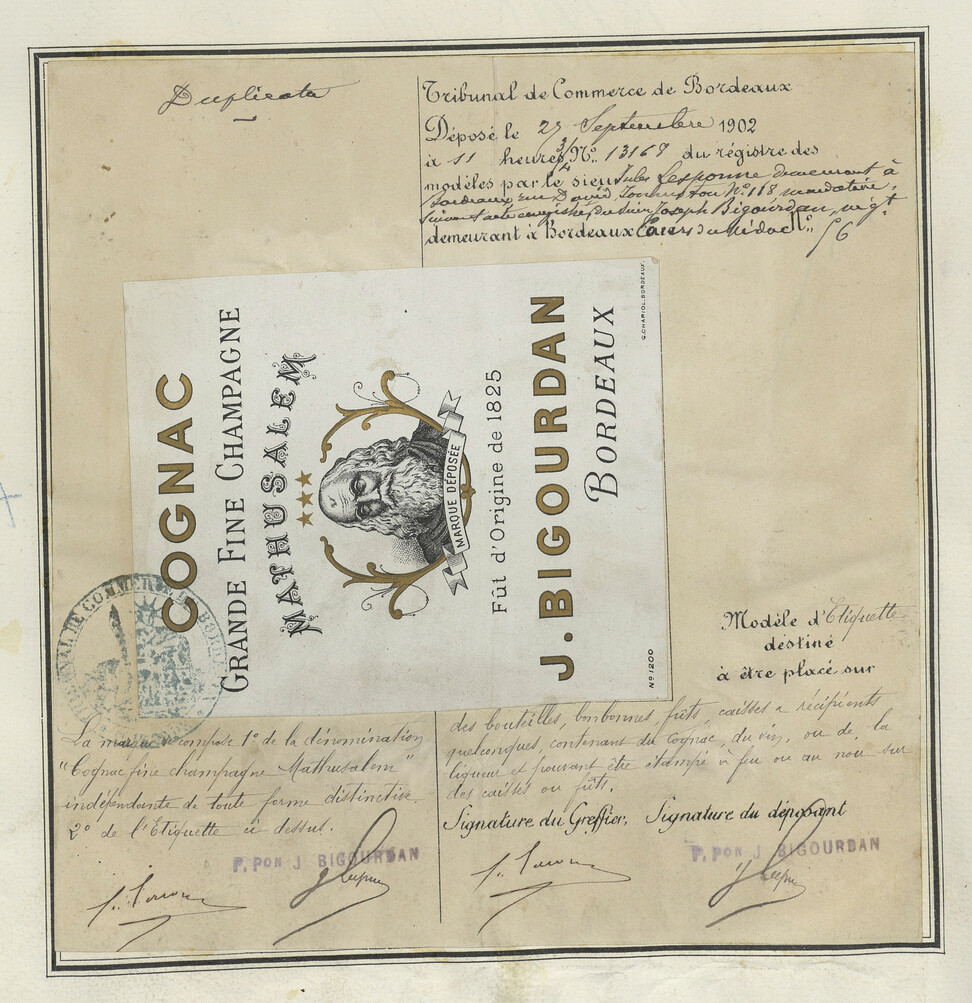 Duplicata
Tribunal de Commerce de Bordeaux
Déposé le 27 Septembre 1902
à 11 heures 3/4 No. 13168 du régistre des
modèles par le sieur Jules Lesponne demeurant à
Bordeaux rue David Johnston No 118 mandataire,
suivant acte enregistré, du sieur Joseph Bigourdan, négt.
demeurant à Bordeaux Cours du Médoc No. 56
COGNAC
GRANDE FINE CHAMPAGNE
MATHUSALEM
MARQUE DÉPOSÉE
Fût d'Origine de 1825
J. BIGOURDAN
BORDEAUX
No 1200
G. CHARIOL. BORDEAUX.
TRIBUNAL DE COMMERCE BORD
Modèle d'Etiquette
destiné
à être placé sur
des bouteilles, bonbonnes, fûts, caisses & récipients
quelconques, contenant du Cognac, du vin, ou de la
liqueur et pouvant être étampé à feu ou au noir sur
des caisses ou fûts.
La marque se compose 1o de la dénomination
"Cognac fine champagne Mathusalem"
indépendante de toute forme distinctive.
2o de l'Etiquette ci dessus.
Signature du Greffier, Signature du déposant
P. PON J BIGOURDAN
P. PON J BIGOURDAN